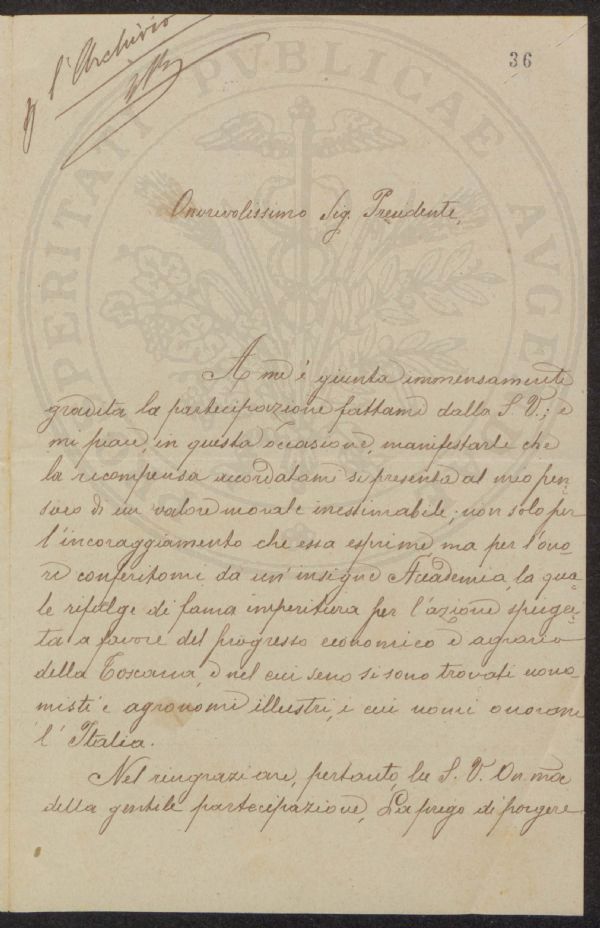 l'Archivio
36
PROSPERITATI PVBLICAE AVGENDAE
Onorevolissimo Sig. Presidente,
A me è giunta immensamente
gradita la partecipazione fattami dalla S. V.; e
mi piace, in questa occasione, manifestarle che
la ricompensa accordatami si presenta al mio pen-
siero di un valore morale inestimabile; non solo per
l'incoraggiamento che essa esprime, ma per l'ono-
re conferitomi da un'insigne Accademia, la qua-
le rifulge di fama imperitura per l'azione spiega-
ta a favore del progresso economico e agrario
della Toscana, e nel cui seno si sono trovati econo-
misti e agronomi illustri, i cui nomi onorano
l'Italia.
Nel ringraziare, pertanto, la S. V. On.ma
della gentile partecipazione, La prego di porgere